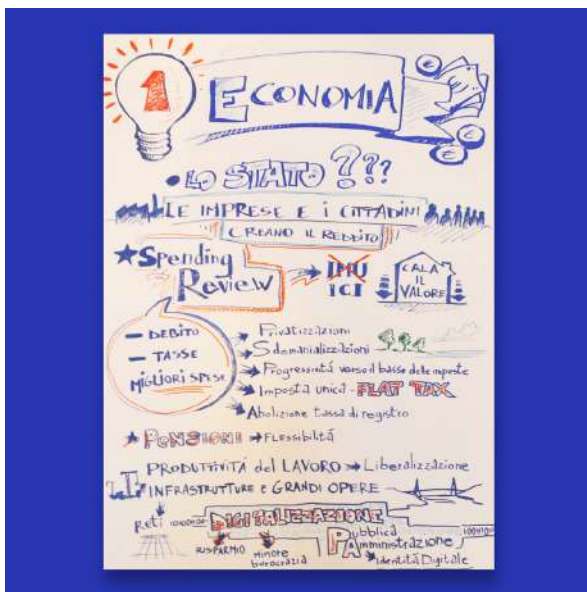 1
ECONOMIA
€
€
€
• LO STATO ???
LE IMPRESE E i CITTADINI
CREANO IL REDDITO
★ Spending Review
IMU
ICI
CALA IL VALORE
– DEBITO
– TASSE
MIGLIORI SPESE
Privatizzazioni
Sdemanializzazioni
Progressività verso il basso delle imposte
Imposta unica - FLAT TAX
Abolizione tassa di registro
★ PENSIONI → Flessibilità
PRODUTTIVITÀ del LAVORO → Liberalizzazione
INFRASTRUTTURE e GRANDI OPERE
Reti
DIGITALIZZAZIONE
RISPARMIO
minore burocrazia
Pubblica Amministrazione
Identità Digitale